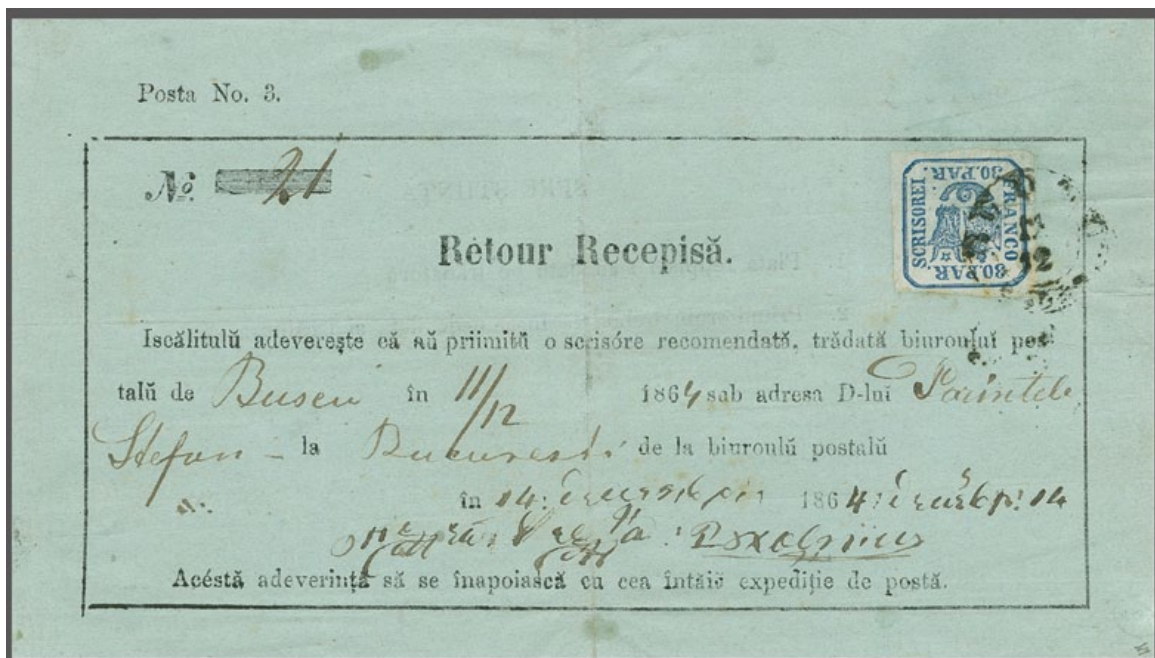 Posta No. 3.
No. 21
SCRISOREI. FRANCO 30.PAR. 30.PAR.
Retour Recepisă.
Iscălitulŭ adeverește că aŭ priimitŭ o scrisóre recomendată, trădată biuroului pos-
talŭ de Buseu în 11/12 1864 sub adresa D-lui Parintele
Stefan - la Bucuresti de la biuroulŭ postalŭ
în 14 1864
Acéstă adeverință să se înapoiască cu cea întăiĕ expediție de postă.